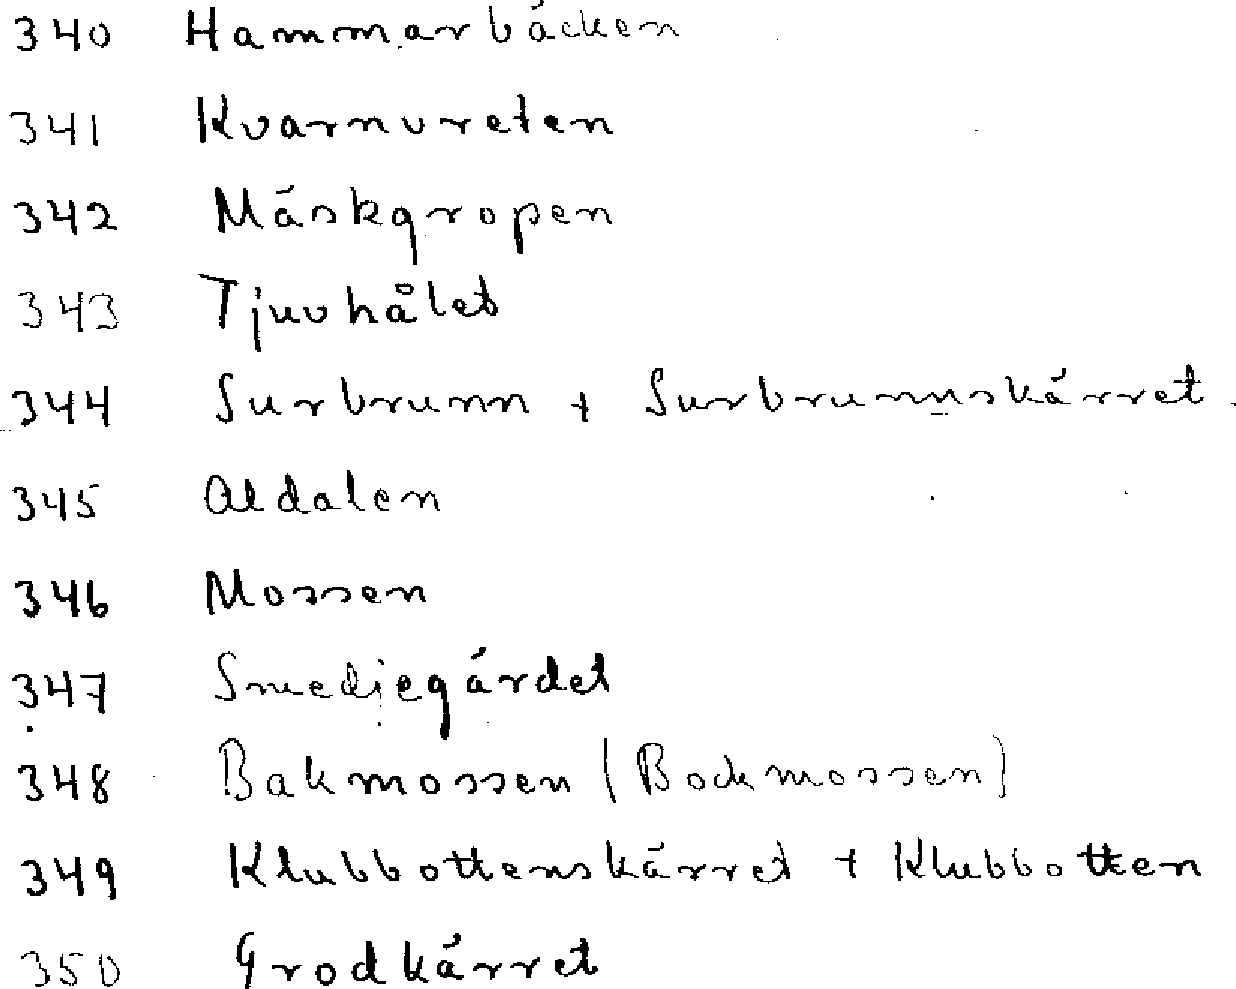 340 Hammarbäcken
341 Kvarnvreten
342 Mäskgropen
343 Tjuvhålet
344 Surbrunn + Surbrunnskärret.
345 Aldalen
346 Mossen
347 Smedjegärdet
348 Bakmossen (Bockmossen)
349 Klubbottenskärret + Klubbotten
350 Grodkärret